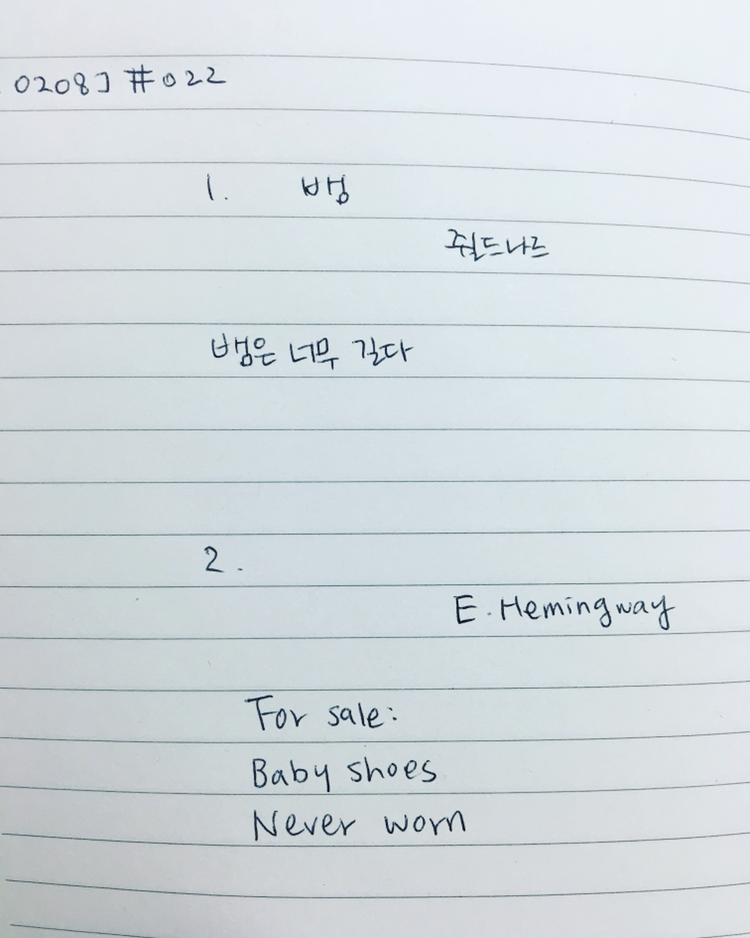 0208] #022
1. 뱀
쥘드나르
뱀은 너무 길다
2.
E. Hemingway
For sale:
Baby shoes
Never worn